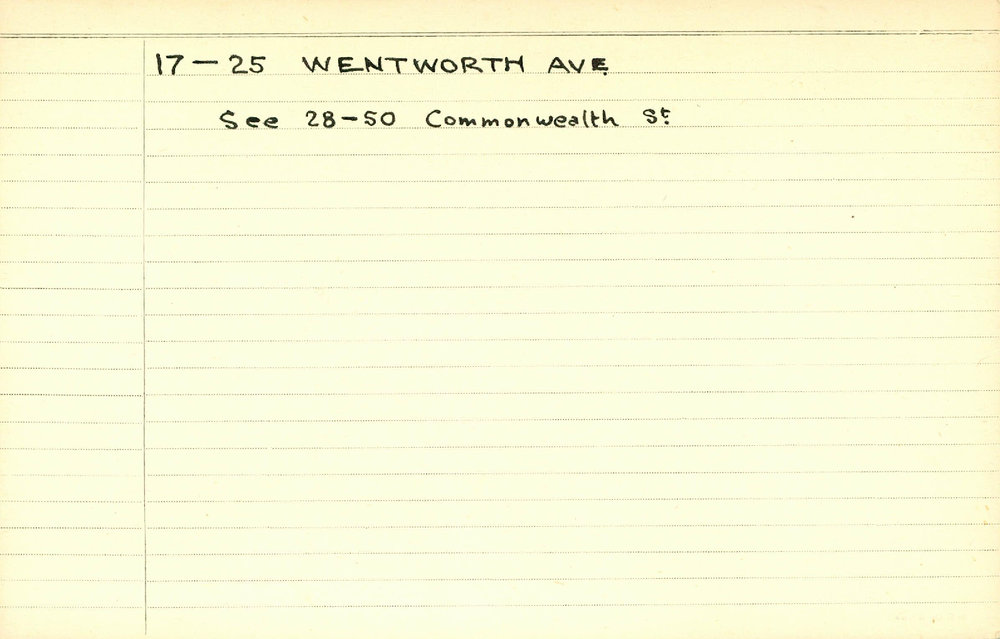 17 – 25 WENTWORTH AVE
See 28-50 Commonwealth St.